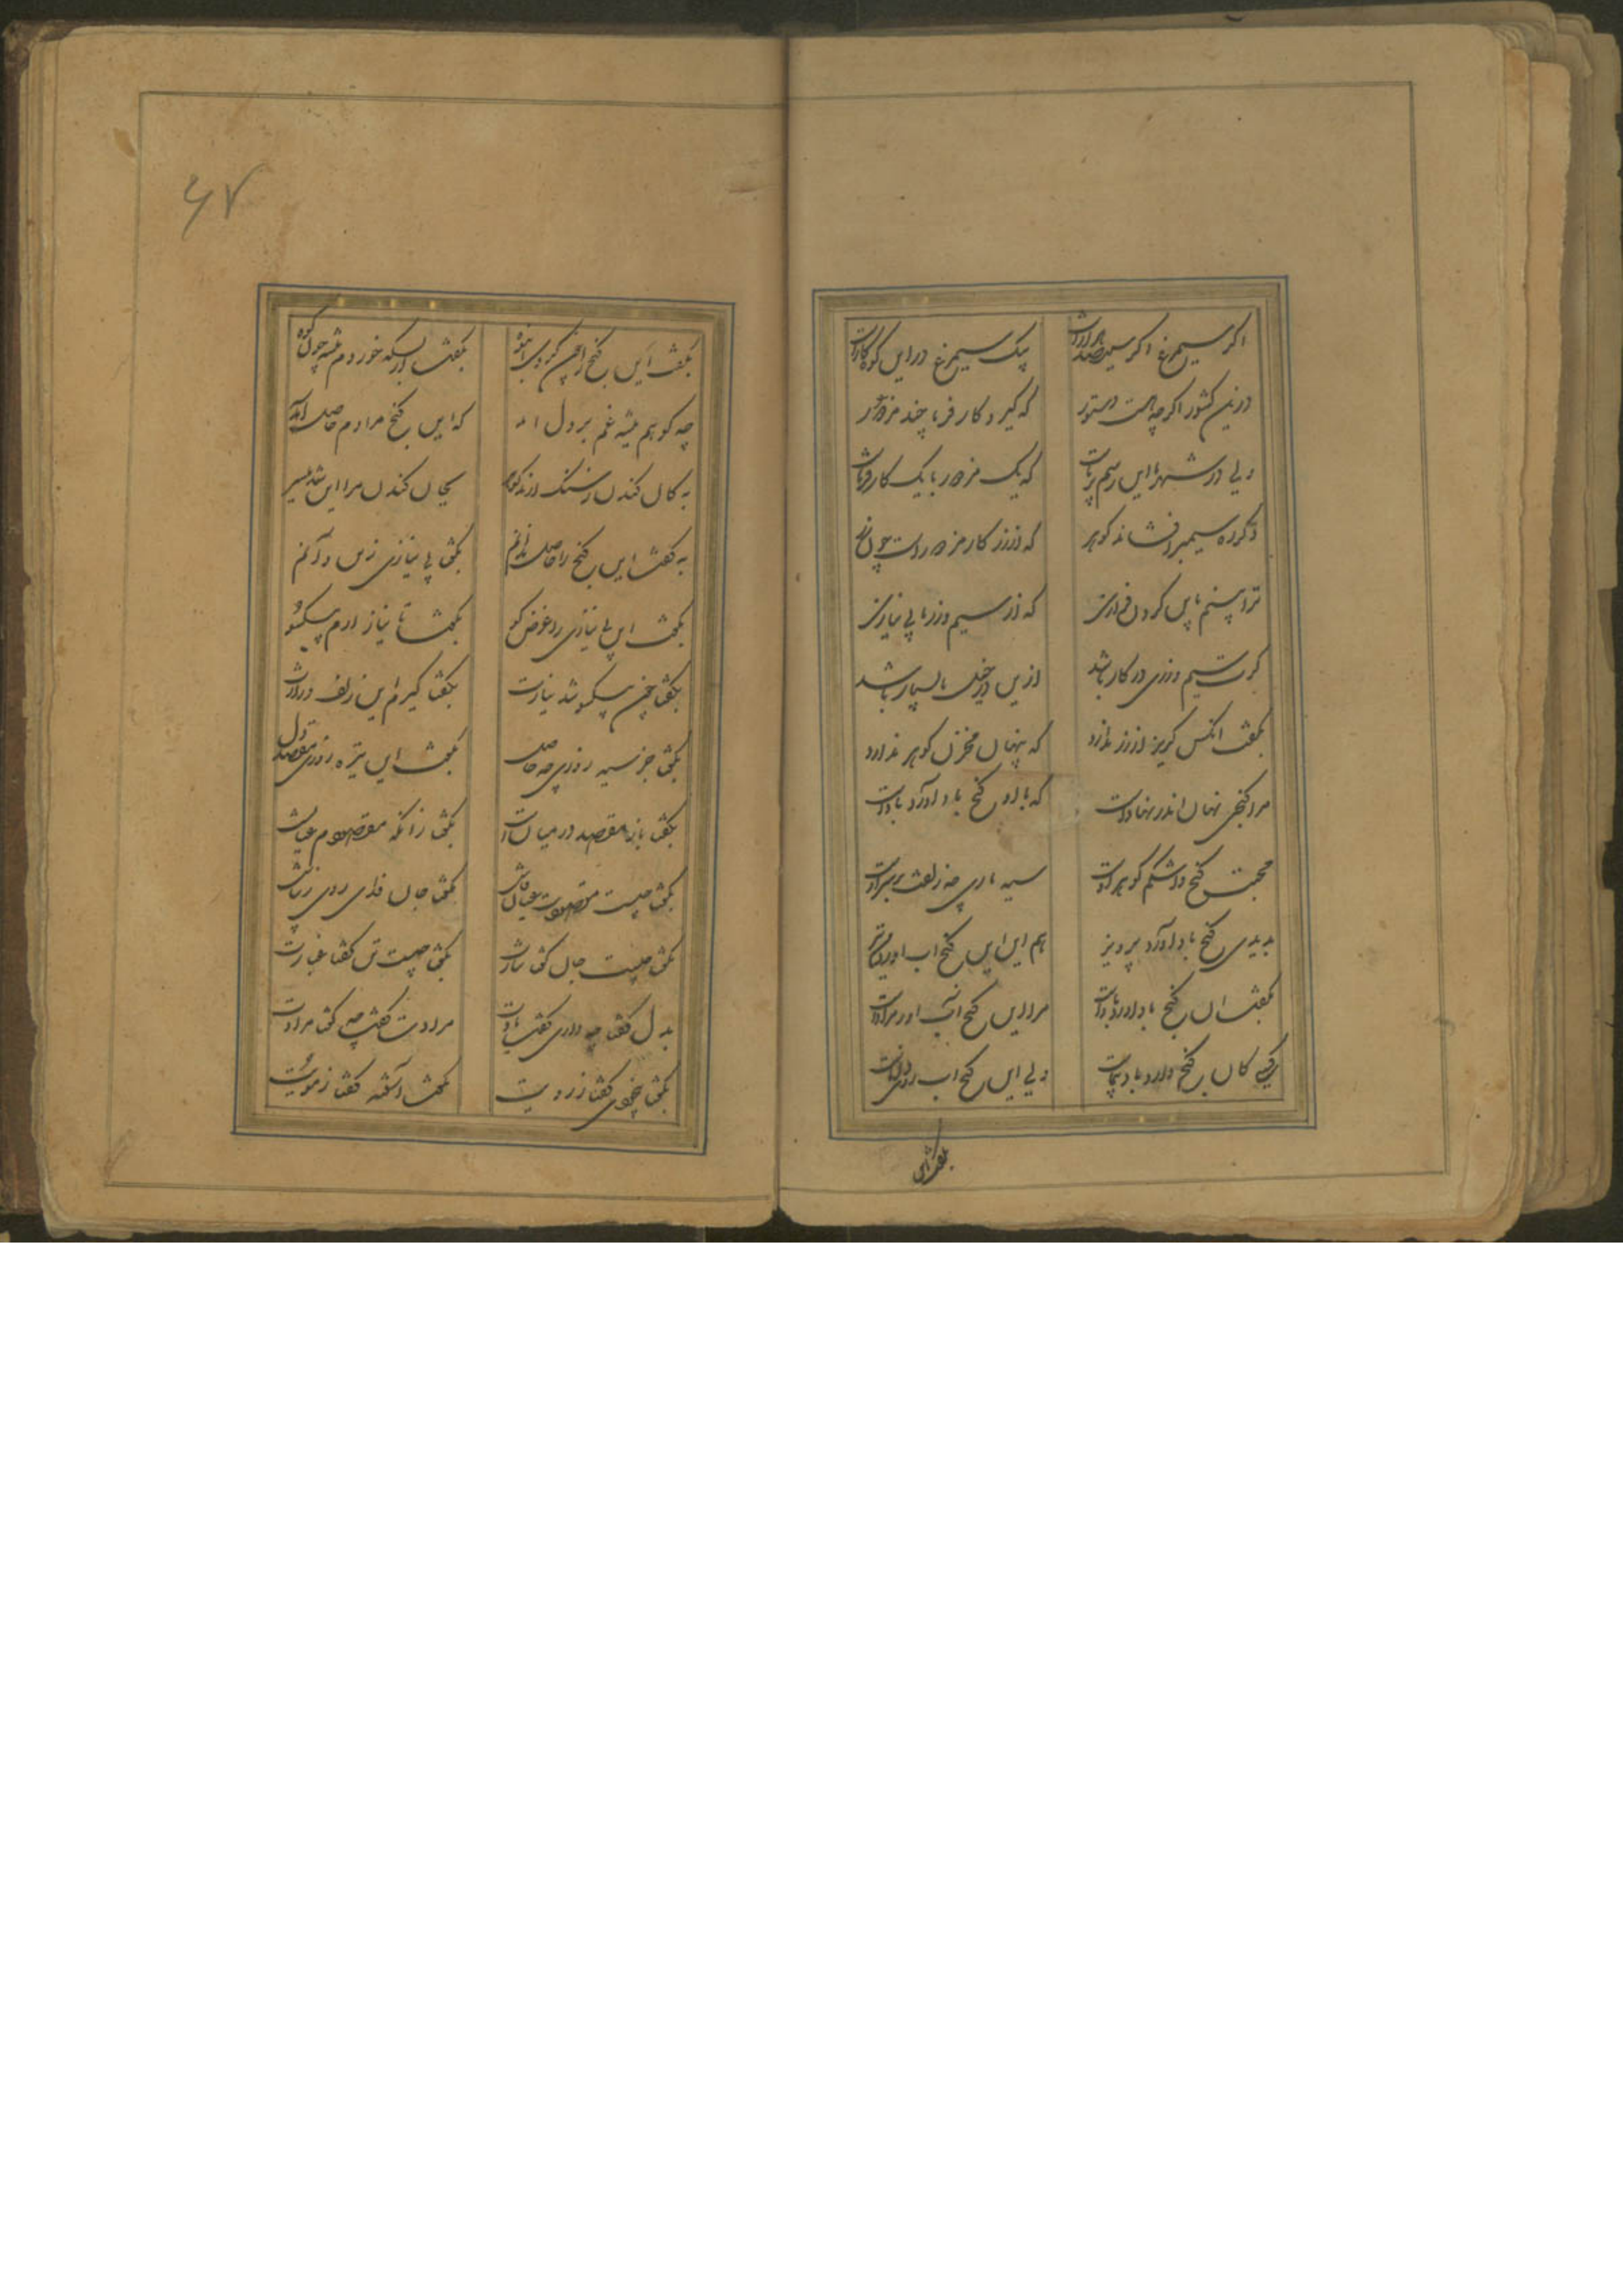 اگر سیمرغ اگر سیصد هزارست
یک سیمرغ در این کوهسارست
درین کشور اگر چه هست دستور
که گیرد کارفرما چند مزدور
ولی در شهر ما این رسم برپاست
که یک مزدور با یک کارفرماست
که از زر کار مزدورست چون زر
ترا بینم باین گردن فرازی
که از سیم و زر ما بی نیازی
گرت سیم و زری در کار باشد
ازین در خسل ما بسیار باشد
بگفت آنکس گریز از زر ندارد
که پنهان مخزن گوهر ندارد
مرا گنجی نهان اندر نهادست
که با او گنج بادآورد بادست
محبت گنج و اشکم گوهر اوست
سیه ماری چو زلفت بر سر اوست
بدیدی گنج بادآورد پرویز
هم این این گنج آب آورد
بگفت آن گنج بادآورد بادست
مرا این گنج آب آور مرادست
کسی کان گنج دارد بادپیماست
ولی این گنج آب روی دریاست
بگفت این
بگفت این گنج را چون کردی انبوه
بگفت از بسکه خوردم تیشه چون کوه
چه کوهم تیشه غم بر دل آمد
که این گنج مرادم حاصل آمد
به کان کندن ز سنگ ارند گوهر
بجان کندن مرا این شد میسر
به گفت این گنج را حاصل ندانم
بگفتا بی نیازی زین و آنم
بگفت این بی نیازی را غرض کو
بگفت تا نیاز آرم بیکسو
بگفتا چون بیکسو شد نیازت
بگفتا گیرم این زلف درازت
بگفتا جز سیه روزی چه حاصل
بگفت این تیره روزی مقصد دل
بگفتا باز مقصد در میان است
بگفتا زانکه مقصودم عیانست
بگفتا چیست مقصودت عیان فاش
بگفتا جان فدای روی زیباش
بگفتا چیست جان گفتا نثارت
بگفتا چیست تن گفتا غبارت
بدل گفتا چه داری گفت یادت
مرادت گفت چه گفتا مرادت
بگفتا بیخودی گفتا ز رویت
بگفت آشفته گفتا ز مویت
۶۷